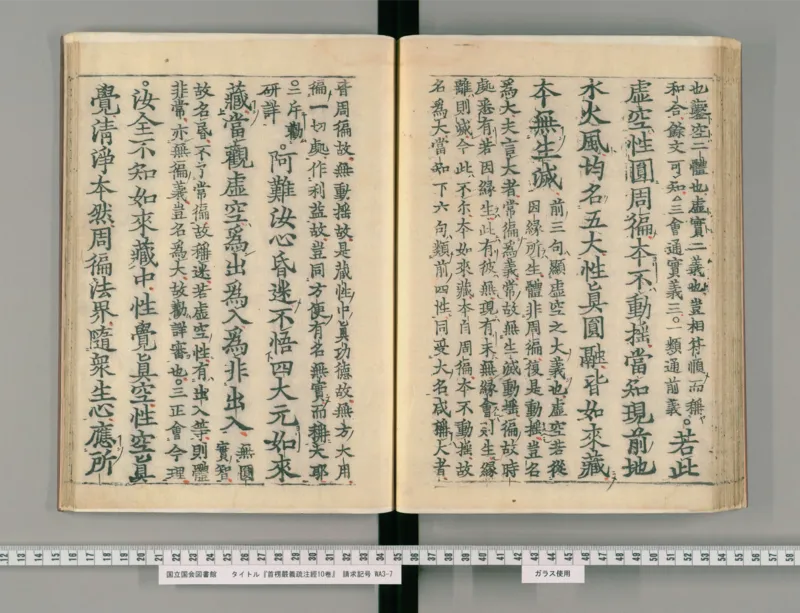 也鑿空二體也虛實二義也豈相符順而稱
和合餘文可知。三會通實義三。一類通前義
。若此
虛空性圓周徧本不動搖當知現前地
水火風均名五大性真圓融皆如來藏
本無生滅
前三句顯虛空之大義也虛空若從
因緣所生體非周徧復是動搖豈名
爲大夫言大者常徧爲義常故無生滅動搖徧故時
處悉有若因緣生此有彼無現有未無緣會則生緣
離則滅今此不尒本如來藏本自周徧本不動搖故
名爲大當知下六句類前四性同受大名咸稱大者
音周徧故無動搖故是藏性中真功德故無方大用
徧一切處作利益故豈同方便有名無實而稱大耶
。三斥勸
研詳
。阿難汝心昏迷不悟四大元如來
藏當觀虛空爲出爲入爲非出入
無圓
實智
故名昏不了常徧故稱迷若虛空性有出入等則體
非常亦無徧義豈名爲大故勸詳審也。三正會今理
。汝全不知如來藏中性覺真空性空真
覺清淨本然周徧法界隨衆生心應所
国立国会図書館 タイトル『首楞厳義疏注経10巻』 請求記号 WA3-7
ガラス使用